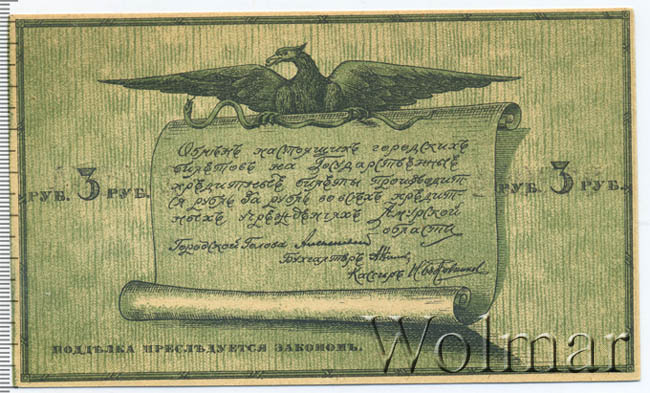 Обмѣнъ настоящихъ городскихъ
билетовъ на Государственные
кредитные билеты производит-
ся рубль за рубль во всѣхъ кредит-
ныхъ учрежденіяхъ Амурской
области
РУБ. 3 РУБ.
РУБ. 3 РУБ.
Городской Голова
Бухгалтеръ
Кассиръ
ПОДДѢЛКА ПРЕСЛѢДУЕТСЯ ЗАКОНОМЪ.
Wolmar